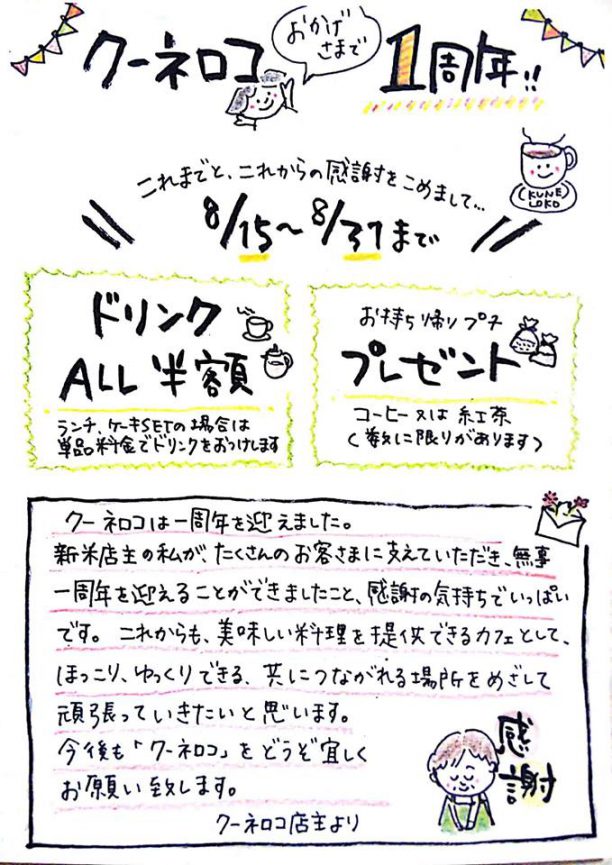 クーネロコ
おかげ
さまで
1周年!!
これまでと、これからの感謝をこめまして…
KUNE
LOKO
8/15〜8/31まで
ドリンク
ALL 半額
ランチ、ケーキSETの場合は
単品料金でドリンクをおつけします
お持ち帰りプチ
プレゼント
コーヒー又は紅茶
(数に限りがあります)
クーネロコは一周年を迎えました。
新米店主の私が、たくさんのお客さまに支えていただき、無事
一周年を迎えることができましたこと、感謝の気持ちでいっぱい
です。これからも、美味しい料理を提供できるカフェとして、
ほっこり、ゆっくりできる、共につながれる場所をめざして
頑張っていきたいと思います。
今後も「クーネロコ」をどうぞ宜しく
お願い致します。
クーネロコ店主より
感
謝